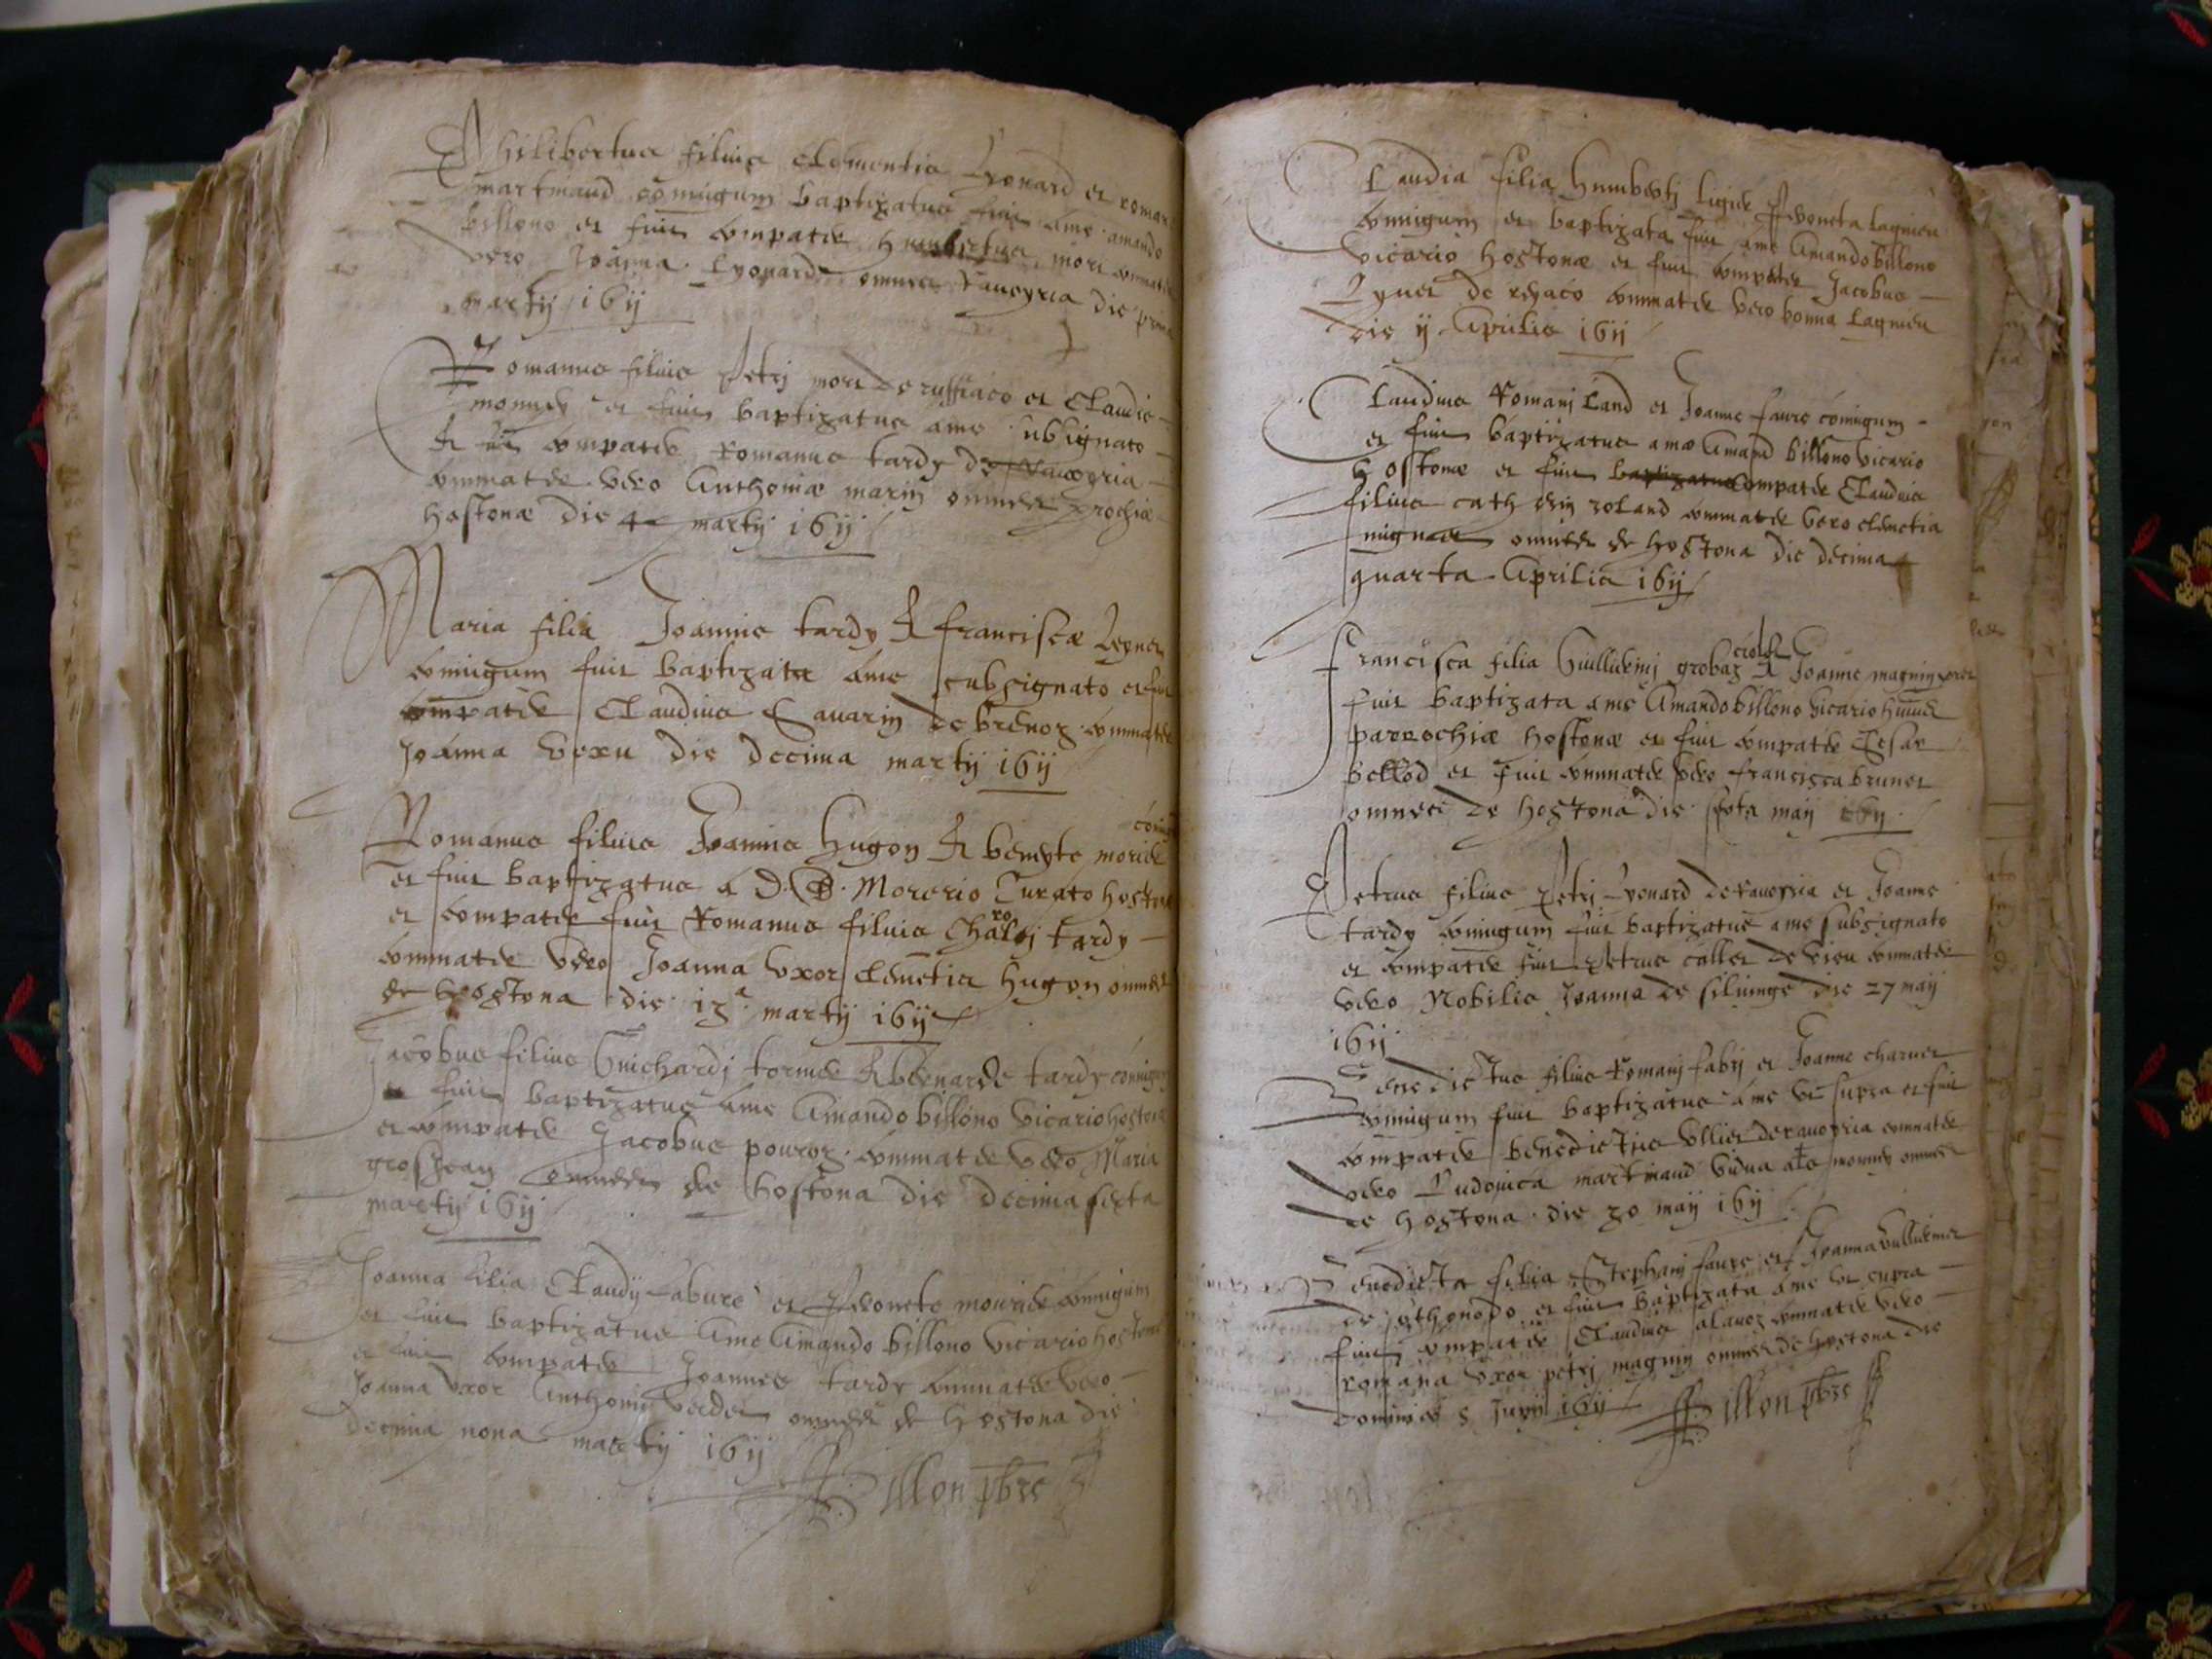 Philibertus filius Clementis Lyonard et roman
martinaud cõiugum baptizatus fuit a me amando
billono et fuit compater Humbertus mori commater
vero Joanna Lyonard omnes Rauoyria die prima
martij 1611
Romanus filius Petri mori de ruffiaco et Claudie
monnier et fuit baptizatus a me subsignato
et fuit compater Romanus tardy de Rauoyria
commater vero Anthoniæ marin omnes prochiæ
Hostonæ die 4 martij 1611
Maria filia Joannis tardy et Franciscæ Leyner
coniugum fuit baptizata a me subsignato et fuit
compater Claudius Sauarin de brenoz commater
Joanna die decima martij 1611
coniug
Romanus filius Joannis Hugon et benoyte morier
et fuit baptizatus a D. B. Morerio Curato Hostone
et compater fuit Romanus filius Charoli tardy
commater vero Joanna vxor Clemẽtis Hugon omnes
de Hostona die 13ᵃ martij 1611
Jacobus filius Guichardi tornier et bernarde tardy coniugum
fuit baptizatus a me Amando billono vicario hostone
et compater Jacobus pouroz commater vero Maria
grosjean omnes de hostona die decima sexta
martij 1611
Joanna filia Claudij Fabure et Peronete mourier coniugum
et fuit baptizatus a me Amando billono vicario hostone
et fuit compater Joannes tardy commater vero
Joanna vxor Anthonij verder omnes de Hostona die
decima nona martij 1611
Billon pbre
Claudia filia Humberti ligier Peroneta lagnieu
coniugum et baptizata fuit a me Amando billono
vicario Hostonæ et fuit compater Jacobus
Lyner de reyaco commater vero bonna lagnieu
die ij Aprilis 1611
Claudius Romani Land et Joanne faure coniugum
et fuit baptizatus a me Amand billono vicario
Hostonæ et fuit baptizatus compater Claudius
filius catherin roland commater vero clemẽtia
mignier omnes de Hostona die decima
quarta Aprilis 1611
Francisca filia Guillielmi grobaz et Joanne magnin vxor
fuit baptizata a me Amando billono vicario huius
parrochiæ Hostonæ et fuit compater Cesar
bellod et fuit commater vero francisca brunet
omnes de Hostona die maij 1611
Petrus filius Petri Lyonard de Rauoyria et Joanne
tardy coniugum fuit baptizatus a me subsignato
et compater fuit Petrus callet de vieu commater
vero Nobilis Joanna de siluinge die 27 maij
1611
Benedictus filius Romani fabij et Joanne charuet
coniugum fuit baptizatus a me vt supra et fuit
compater benedictus vllier de rauoyria commater
vero Ludouica martinaud vidua monnier omnes
de Hostona die 30 maij 1611
Benedicta filia Stephani faure et Joanna vullielmet
de et fuit baptizata a me vt supra
fuit compater Claudius alauoz commater vero
romana vxor petri magnin omnes de Hostona die
dominica 5 Junij 1611
Billon pbre